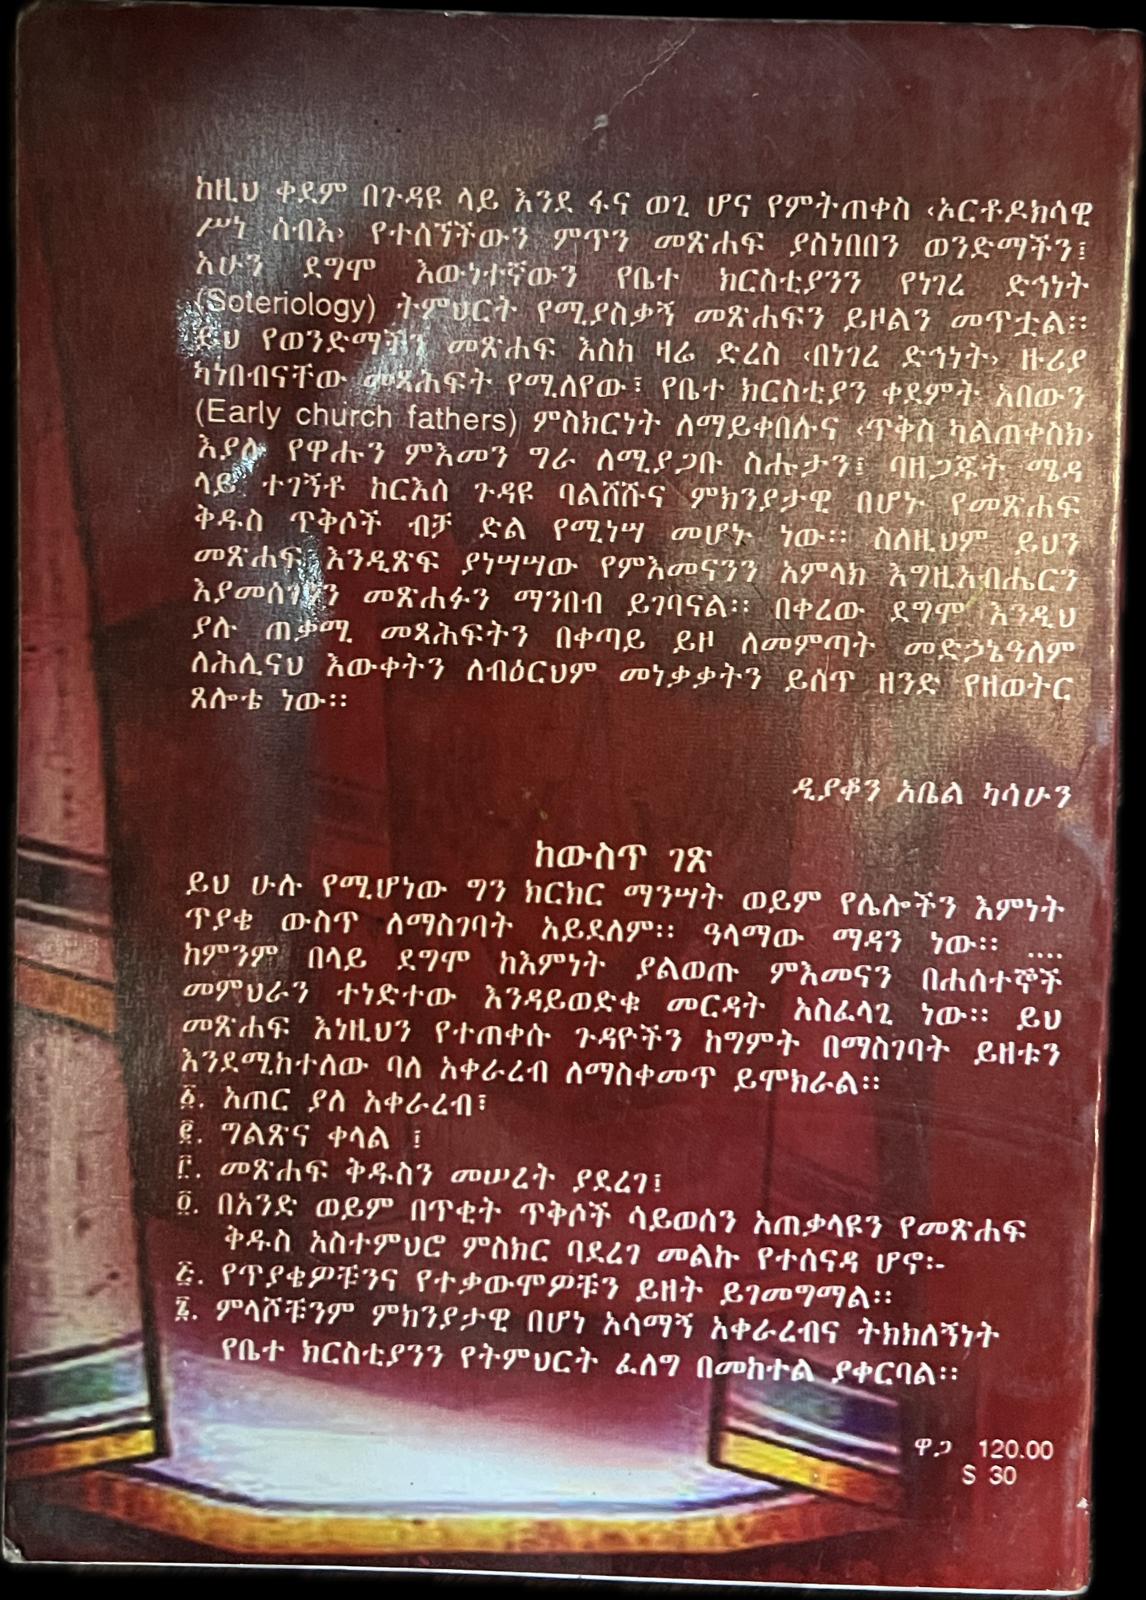 ከዚህ ቀደም በጉዳዩ ላይ እንደ ፋና ወጊ ሆና የምትጠቀስ ‹ኦርቶዶክሳዊ
ሥነ ሰብእ› የተሰኘችውን ምጥን መጽሐፍ ያስነበበን ወንድማችን፤
አሁን ደግሞ እውነተኛውን የቤተ ክርስቲያንን የነገረ ድኅነት
(Soteriology) ትምህርት የሚያስቃኝ መጽሐፍን ይዞልን መጥቷል።
ይህ የወንድማችን መጽሐፍ እስከ ዛሬ ድረስ ‹በነገረ ድኅነት› ዙሪያ
ካነበብናቸው መጻሕፍት የሚለየው፣ የቤተ ክርስቲያን ቀደምት አበውን
(Early church fathers) ምስክርነት ለማይቀበሉና ‹ጥቅስ ካልጠቀስክ›
እያሉ የዋሑን ምእመን ግራ ለሚያጋቡ ስሑታን፤ ባዘጋጁት ሜዳ
ላይ ተገኝቶ ከርእሰ ጉዳዩ ባልሸሹና ምክንያታዊ በሆኑ የመጽሐፍ
ቅዱስ ጥቅሶች ብቻ ድል የሚነሣ መሆኑ ነው። ስለዚህም ይህን
መጽሐፍ እንዲጽፍ ያነሣሣው የምእመናንን አምላክ እግዚአብሔርን
እያመሰገንን መጽሐፉን ማንበብ ይገባናል። በቀረው ደግሞ እንዲህ
ያሉ ጠቃሚ መጻሕፍትን በቀጣይ ይዞ ለመምጣት መድኃኔዓለም
ለሕሊናህ እውቀትን ለብዕርህም መነቃቃትን ይሰጥ ዘንድ የዘወትር
ጸሎቴ ነው።
ዲያቆን አቤል ካሳሁን
ከውስጥ ገጽ
ይህ ሁሉ የሚሆነው ግን ክርክር ማንሣት ወይም የሌሎችን እምነት
ጥያቄ ውስጥ ለማስገባት አይደለም። ዓላማው ማዳን ነው። ....
ከምንም በላይ ደግሞ ከእምነት ያልወጡ ምእመናን በሐሰተኞች
መምህራን ተነድተው እንዳይወድቁ መርዳት አስፈላጊ ነው። ይህ
መጽሐፍ እነዚህን የተጠቀሱ ጉዳዮችን ከግምት በማስገባት ይዘቱን
እንደሚከተለው ባለ አቀራረብ ለማስቀመጥ ይሞክራል።
፩. አጠር ያለ አቀራረብ፣
፪. ግልጽና ቀላል ፤
፫. መጽሐፍ ቅዱስን መሠረት ያደረገ፤
፬. በአንድ ወይም በጥቂት ጥቅሶች ሳይወሰን አጠቃላዩን የመጽሐፍ
ቅዱስ አስተምህሮ ምስክር ባደረገ መልኩ የተሰናዳ ሆኖ፡-
፭. የጥያቄዎቹንና የተቃውሞዎቹን ይዘት ይገመግማል።
፮. ምላሾቹንም ምክንያታዊ በሆነ አሳማኝ አቀራረብና ትክክለኝነት
የቤተ ክርስቲያንን የትምህርት ፈለግ በመከተል ያቀርባል።
ዋጋ 120.00
$ 30